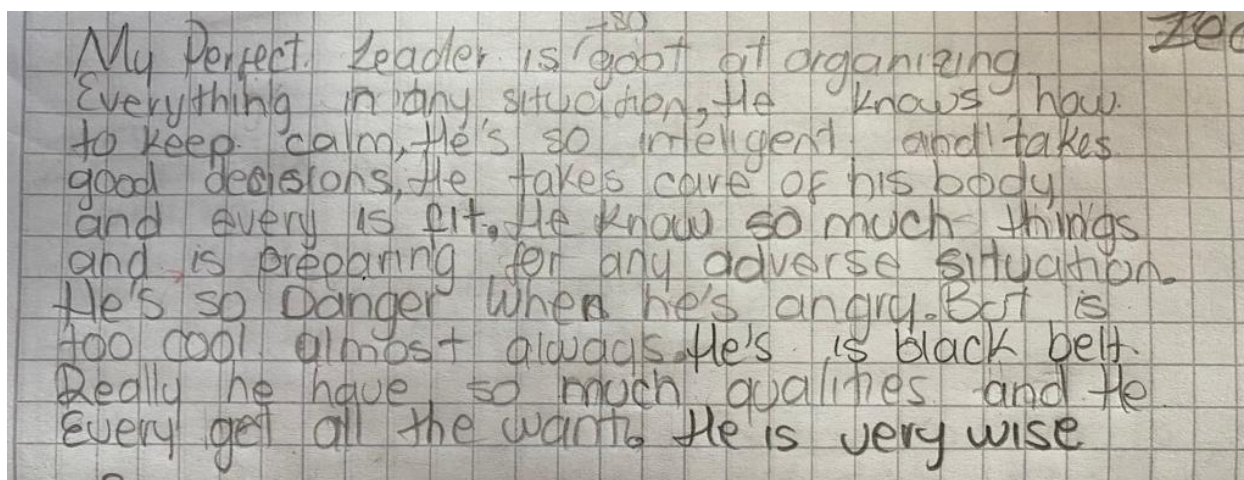 My Perfect. Leader is so goot at organizing
Everything in any situation, He knows how.
to keep. calm, He's so inteligent and takes.
good decisions, He takes care of his body
and every is fit, He know so much things
and is preparing for any adverse situation.
He's so Danger When he's angry. But is
too cool almost always. He's is black belt.
Really he have so much qualities and He
Every get all the want. He is very wise